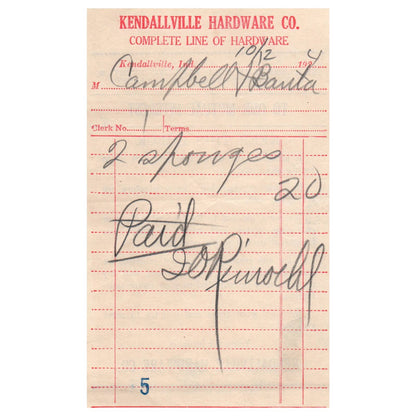 KENDALLVILLE HARDWARE CO.
COMPLETE LINE OF HARDWARE
Kendallville, Ind. 10/2 1924
M Campbell & Bauta
Clerk No. 1 Terms
2 sponges 20
Paid
5